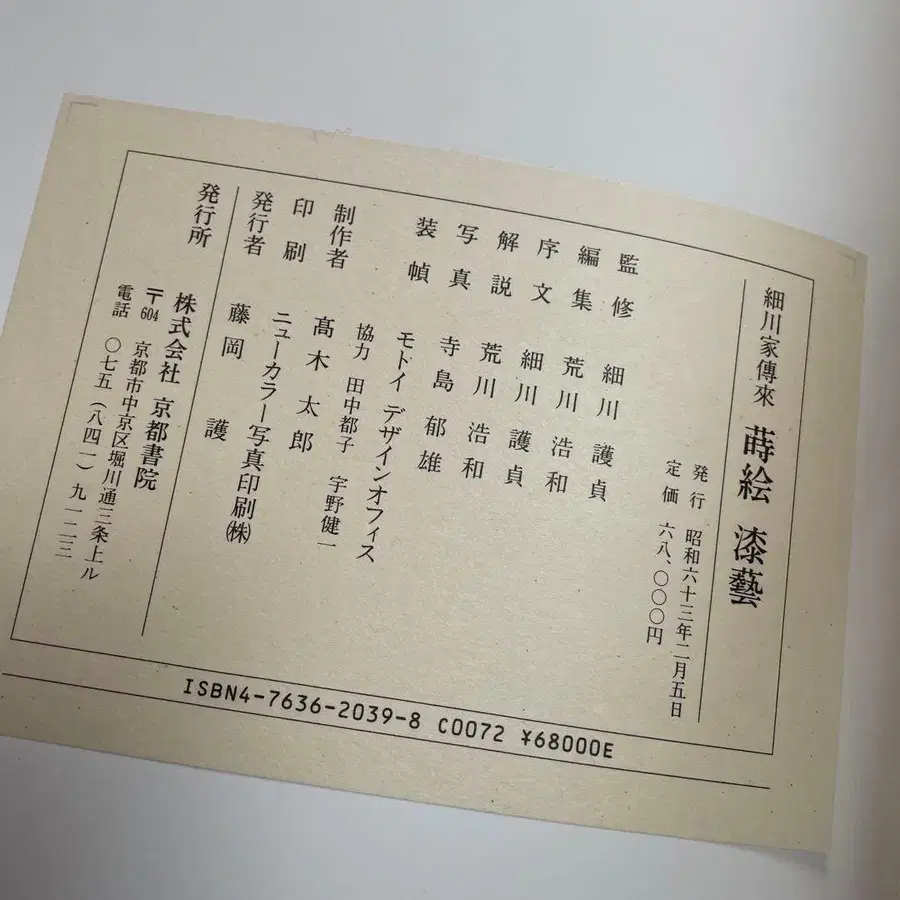 細川家傳來 蒔絵 漆藝
発行 昭和六十三年二月五日
定価 六八、〇〇〇円
監修 細川護貞
編集 荒川浩和
序文 細川護貞
解説 荒川浩和
写真 寺島郁雄
装幀 モトイ デザインオフィス
協力 田中都子 宇野健一
制作者 髙木太郎
印刷 ニューカラー写真印刷㈱
発行者 藤岡護
発行所 株式会社 京都書院
〒604 京都市中京区堀川通三条上ル
電話 〇七五(八四一)九一二三
ISBN4-7636-2039-8 C0072 ¥68000E